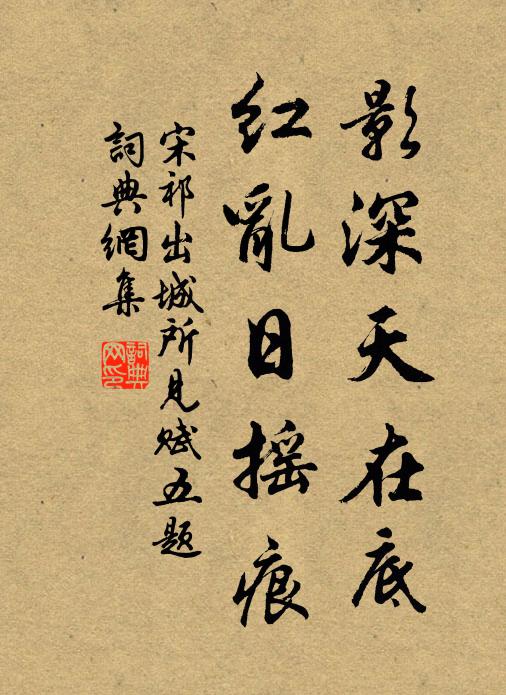 影深天在底
紅亂日摇痕
宋祁出城所見賦五题
詞典網集
詞典网印